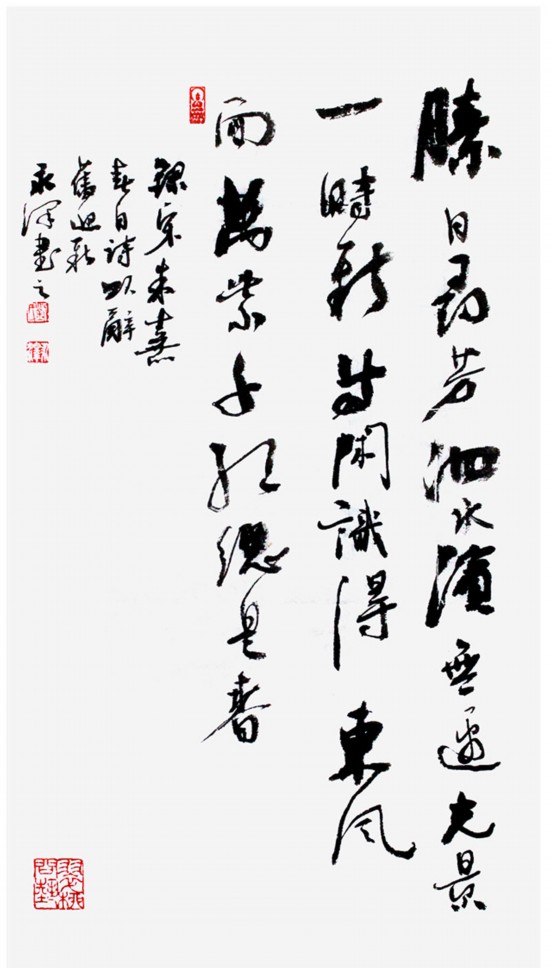 勝日尋芳泗水濱無邊光景
一時新等閑識得東風
面萬紫千紅總是春
錄宋朱熹
春日詩以辭
舊迎新
永澤書之